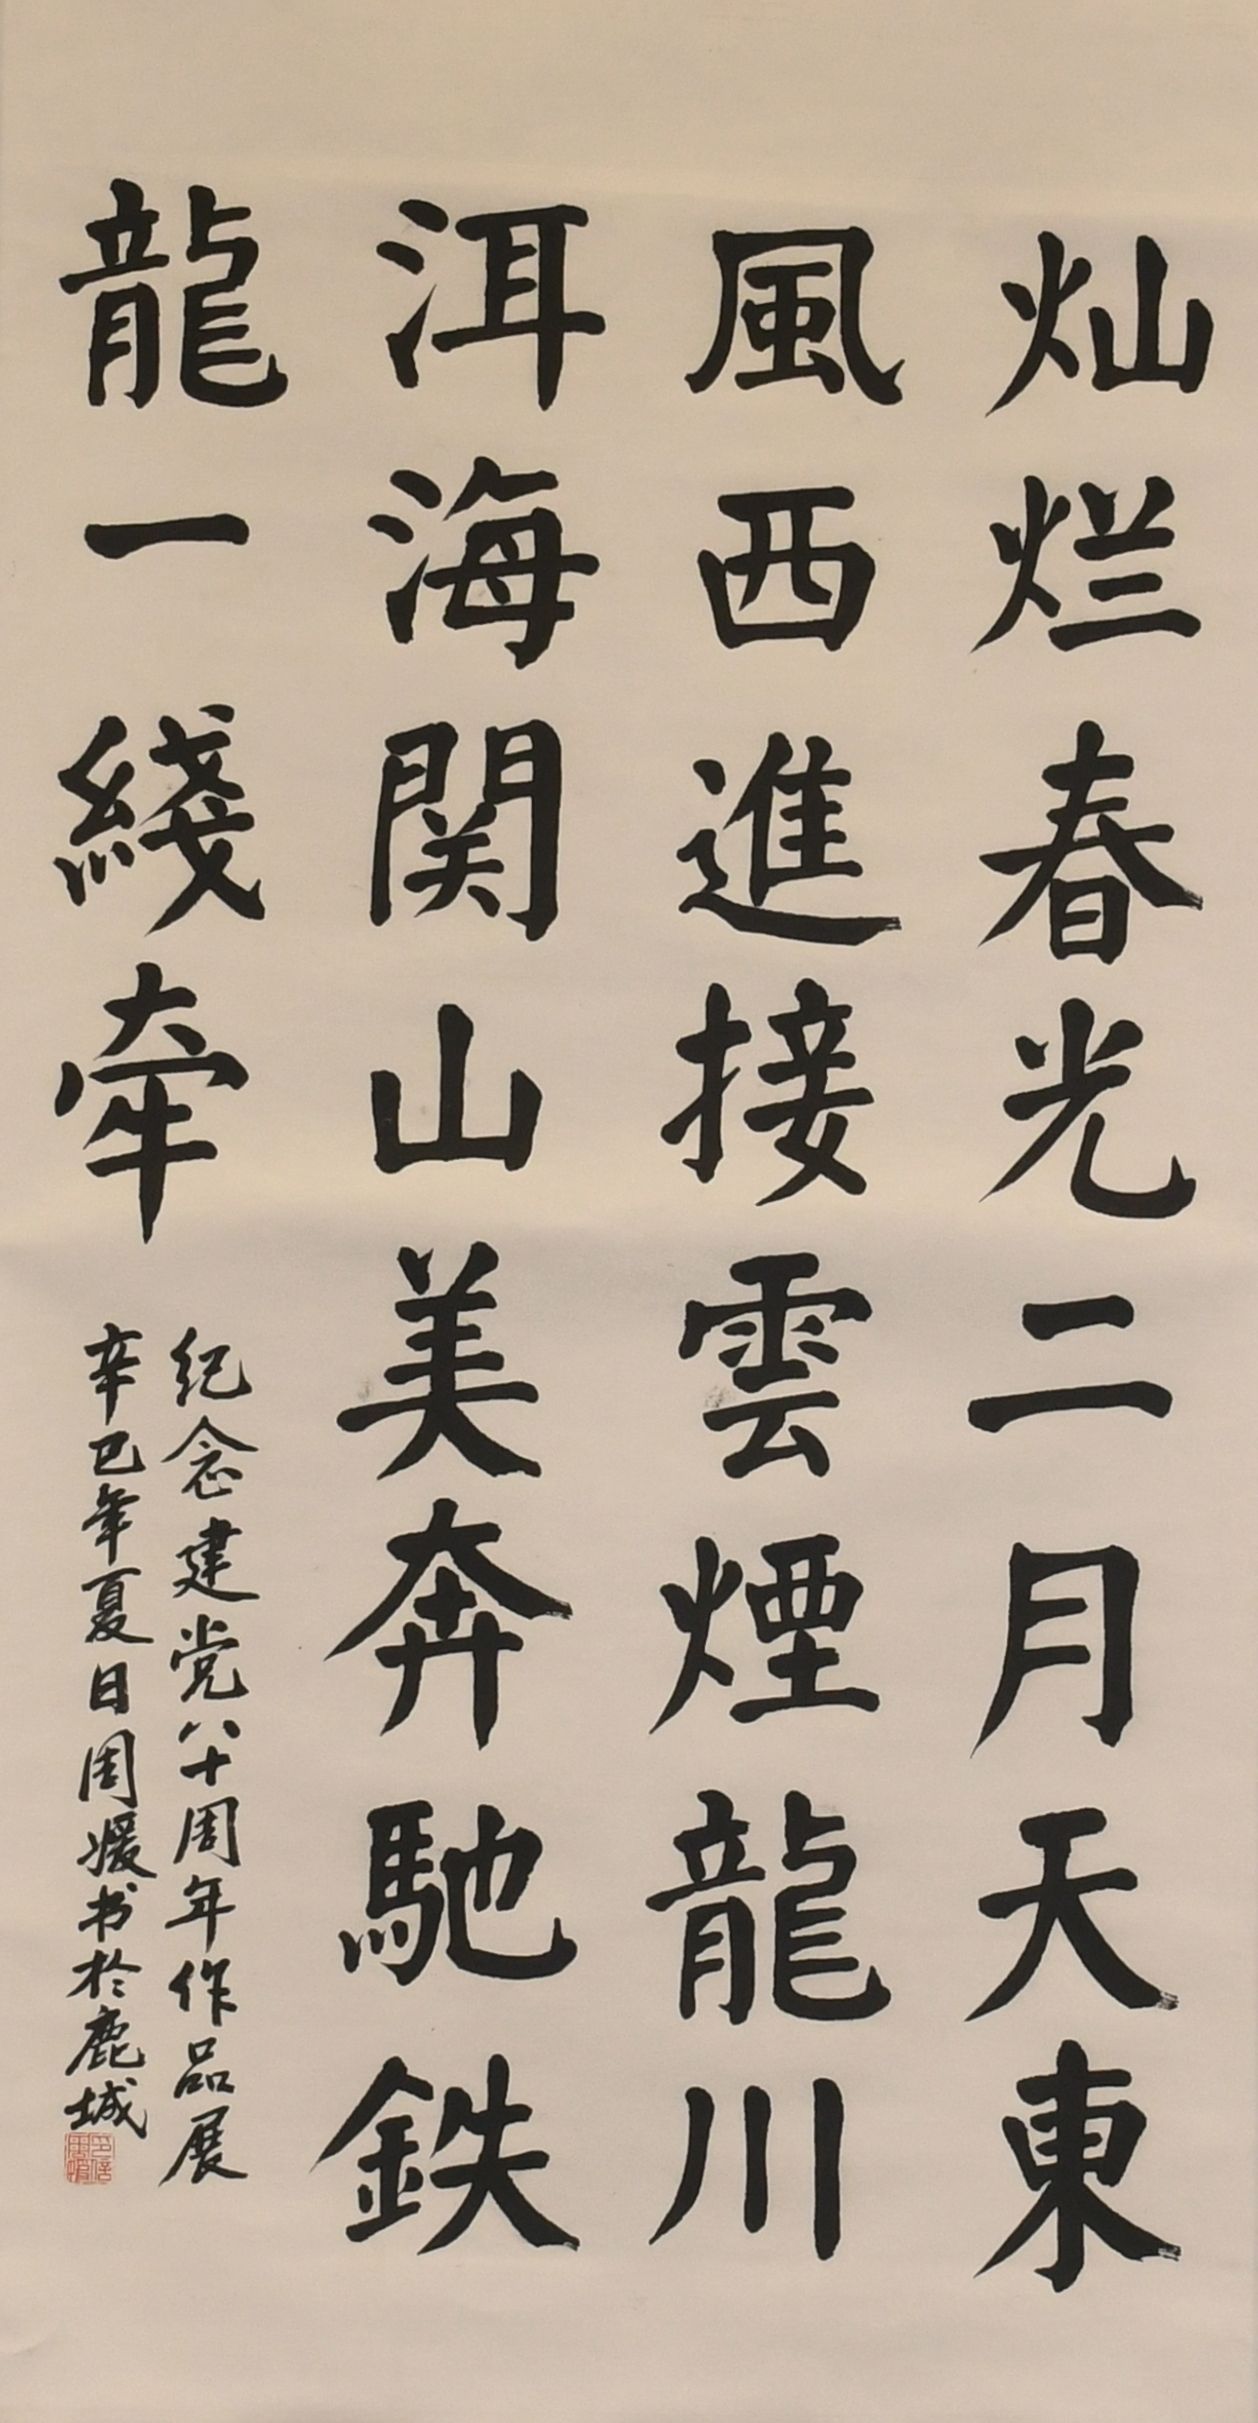 灿烂春光二月天東
風西進接雲煙龍川
洱海関山美奔馳鉄
龍一綫牽
纪念建党八十周年作品展
辛巳年夏日周媛书於鹿城